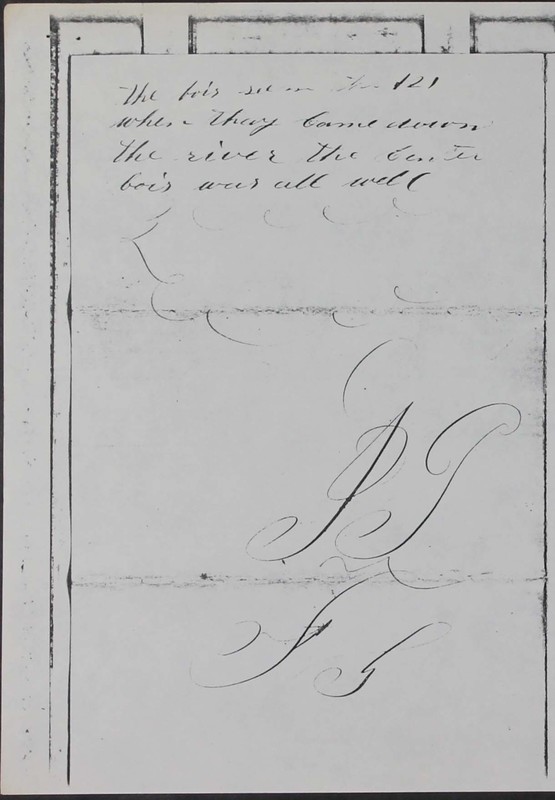 the bois see the 121
when thay came down
the river the Center
bois was all well